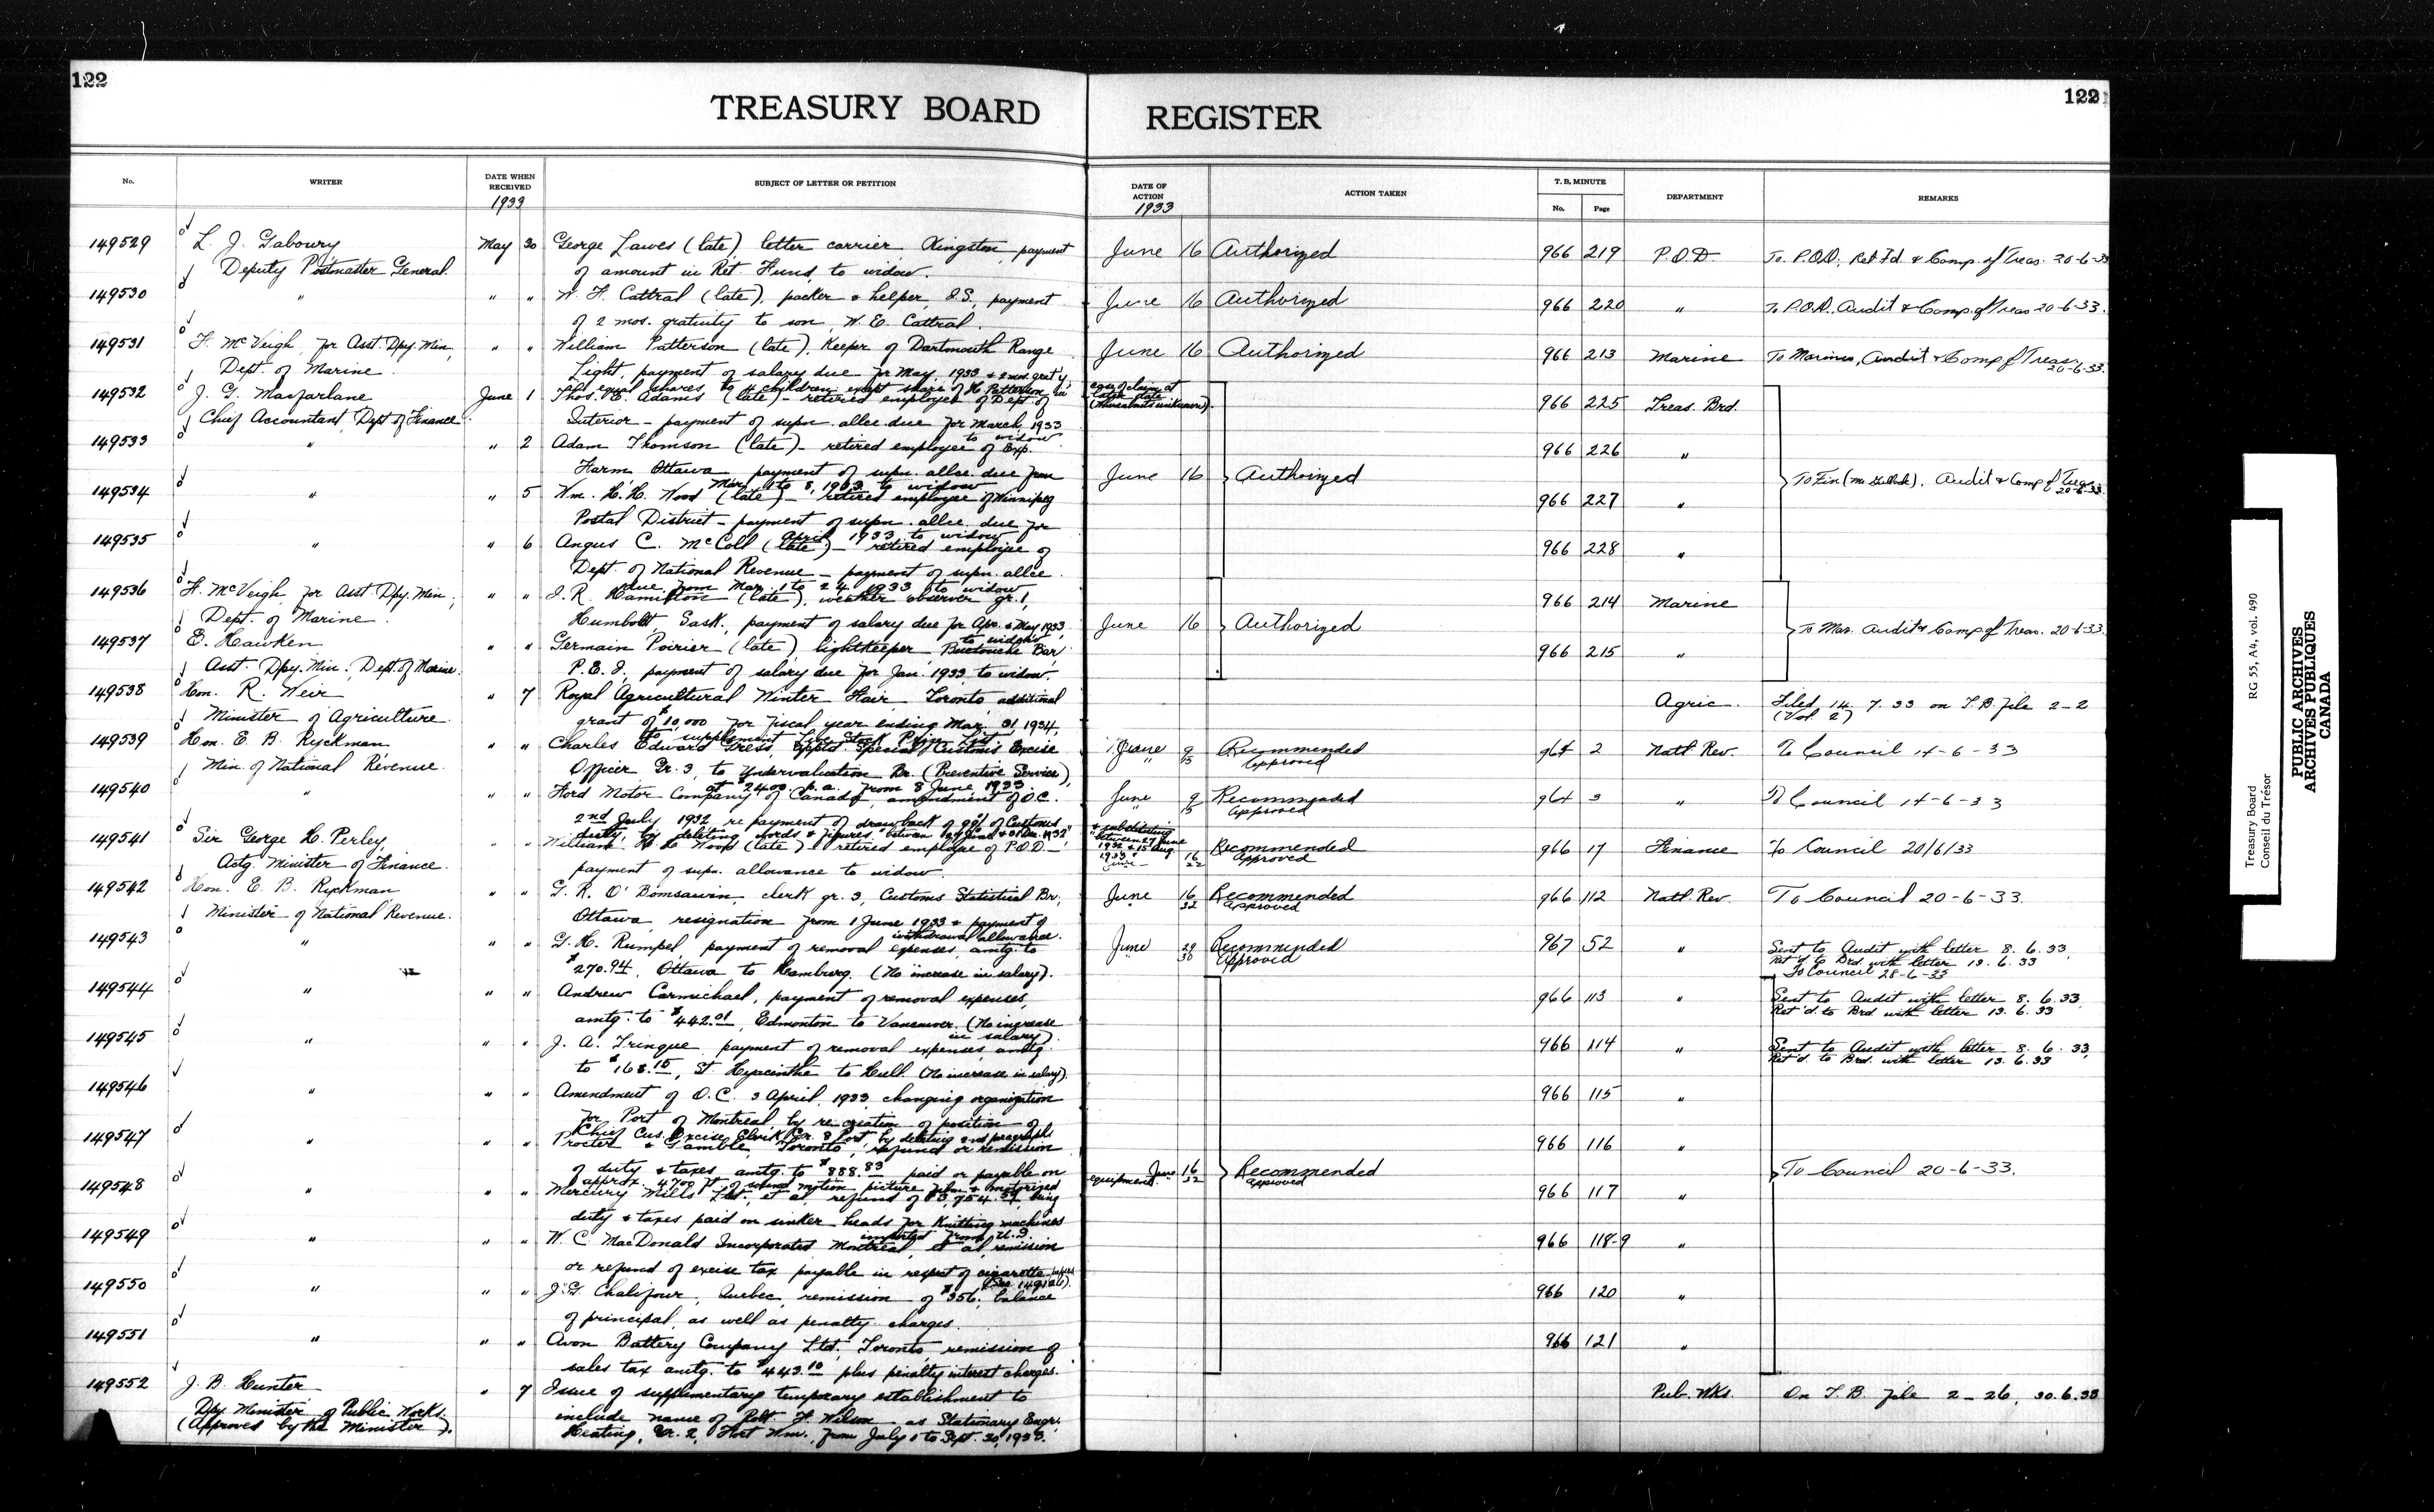 122
122
TREASURY BOARD REGISTER
No. WRITER DATE WHEN RECEIVED 1933 SUBJECT OF LETTER OR PETITION DATE OF ACTION 1933 ACTION TAKEN T. B. MINUTE No. Page DEPARTMENT REMARKS
149529 L. J. Gaboury, May 30 George Lawes (late) letter carrier Kingston, payment June 16 Authorized 966 219 P.O.D. To P.O.D., Ret Fd. & Comp. of Treas. 20-6-33
Deputy Postmaster General. of amount in Ret. Fund, to widow.
149530 " " " W. F. Cattral (late), packer & helper, P.S., payment June 16 Authorized 966 220 " To P.O.D., Audit & Comp. of Treas 20-6-33.
of 2 mos. gratuity to son, W. E. Cattral.
149531 F. McVeigh, for Asst. Dpy. Min., " " William Patterson (late), Keeper of Dartmouth Range June 16 Authorized 966 213 Marine To Marine, Audit & Comp of Treas. 20-6-33.
Dept. of Marine. Light, payment of salary due for May 1933 & 2 mos. grat'y,
equal shares to 4 children except share of H. Patterson in case of claim at later date
149532 J. G. Macfarlane June 1 Thos. E. Adams (late) - retired employee of Dept. of 966 225 Treas. Brd.
Chief Accountant, Dept of Finance. Interior - payment of supn. allce. due for March 1933 to widow
149533 " " 2 Adam Thomson (late) - retired employee of Exp. 966 226 "
Farm Ottawa payment of supn. allce. due from Mar. 1 to 8, 1933 to widow June 16 Authorized
149534 " " 5 Wm. H. H. Wood (late) - retired employee of Winnipeg 966 227 " To Fin (Mr. Gullock). Audit & Comp of Treas 20-6-33.
Postal District - payment of supn. allce. due for April 1933 to widow
149535 " " 6 Angus C. McColl (late) - retired employee of 966 228 "
Dept. of National Revenue - payment of supn. allce.
due from Mar. 1 to 24 1933 to widow
149536 F. McVeigh for Asst. Dpy. Min., " " J. R. Hamilton (late), weather observer gr. 1, 966 214 Marine
Dept. of Marine. Humboldt Sask., payment of salary due for Apr. & May 1933, to widow June 16 Authorized To Mar. Audit & Comp of Treas. 20-6-33.
149537 E. Hawken " " Germain Poirier (late) lightkeeper Buctouche Bar, 966 215 "
Asst. Dpy. Min. Dept. of Marine. P.E.I., payment of salary due for Jan. 1933 to widow.
149538 Hon. R. Weir " 7 Royal Agricultural Winter Fair Toronto additional Agric. Filed 14. 7. 33 on T.B. file 2-2
Minister of Agriculture. grant of $10,000 for fiscal year ending Mar. 31, 1934, (Vol 2)
to supplement Live Stock Prize List
149539 Hon. E. B. Ryckman " " Charles Edward Gress apptd Special Customs Excise June 9 15 Recommended Approved 964 2 Natl Rev. To Council 14-6-33
Min. of National Revenue. Officer Gr. 3, to Undervaluation Br. (Preventive Service)
at $2400 p.a. from 8 June 1933
149540 " " " Ford Motor Company of Canada, amendment of O.C. June 9 15 Recommended Approved 964 3 " To Council 14-6-33
2nd July 1932 re payment of drawback of 99% of Customs
duty, by deleting words & figures & substituting
149541 Sir George H. Perley, " " William H. H. Wood (late) retired employee of P.O.D. - June 16 22 Recommended Approved 966 17 Finance To Council 20/6/33
Actg. Minister of Finance. payment of supn. allowance to widow
149542 Hon. E. B. Ryckman " " G. R. O'Bomsawin, clerk gr. 3, Customs Statistical Br, June 16 22 Recommended Approved 966 112 Natl. Rev. To Council 20-6-33.
Minister of National Revenue. Ottawa, resignation from 1 June 1933 & payment of withdrawal allowance.
149543 " " " G. H. Rumpel, payment of removal expenses, amtg. to June 29 30 Recommended Approved 967 52 " Sent to Audit with letter 8. 6. 33,
$270.94, Ottawa to Hamburg. (No increase in salary). Ret'd to Brd with letter 13. 6. 33
To Council 28-6-33
149544 " " " Andrew Carmichael, payment of removal expenses, 966 113 " Sent to Audit with letter 8. 6. 33,
amtg. to $442.01, Edmonton to Vancouver. (No increase in salary). Ret'd. to Brd with letter 13. 6. 33
149545 " " " J. A. Trinque, payment of removal expenses, amtg. 966 114 " Sent to Audit with letter 8. 6. 33,
to $168.15, St Hyacinthe to Hull. (No increase in salary). Ret'd. to Brd. with letter 13. 6. 33
149546 " " " Amendment of O.C. 3 April, 1933 changing organization 966 115 "
for Port of Montreal by re-creation of position of
Chief Cus. Excise Clerk Gr. 8 Port, by deleting 2nd paragraph
149547 " " " Procter & Gamble, Toronto, refund or remission 966 116 "
of duty & taxes amtg. to $888.83 paid or payable on
approx. 4700 ft of sound motion picture film & motorized equipment June 16 22 Recommended Approved To Council 20-6-33.
149548 " " " Mercury Mills Ltd. et al, refund of being 966 117 "
duty & taxes paid on sinker heads for Knitting machines imported from U.S.
149549 " " " W. C. MacDonald Incorporated Montreal, et al, remission 966 118-9 "
or refund of excise tax payable in respect of cigarette papers
149550 " " " J. G. Chalifour, Quebec, remission of $356, balance 966 120 "
of principal, as well as penalty charges.
149551 " " " Avon Battery Company Ltd. Toronto, remission of 966 121 "
sales tax amtg. to $443.10 plus penalty interest charges.
149552 J. B. Hunter " 7 Issue of supplimentary temporary establishment to Pub. Wks. On T. B. file 2-26, 30.6.33
Dpy. Minister of Public Works. include name of Robt. F. Wilson as Stationary Engr.
(Approved by the Minister). Heating, Gr. 2, Fort Wm., from July 1 to Sept. 30, 1933.
Treasury Board RG 55, A4, vol. 490
Conseil du Trésor
PUBLIC ARCHIVES
ARCHIVES PUBLIQUES
CANADA